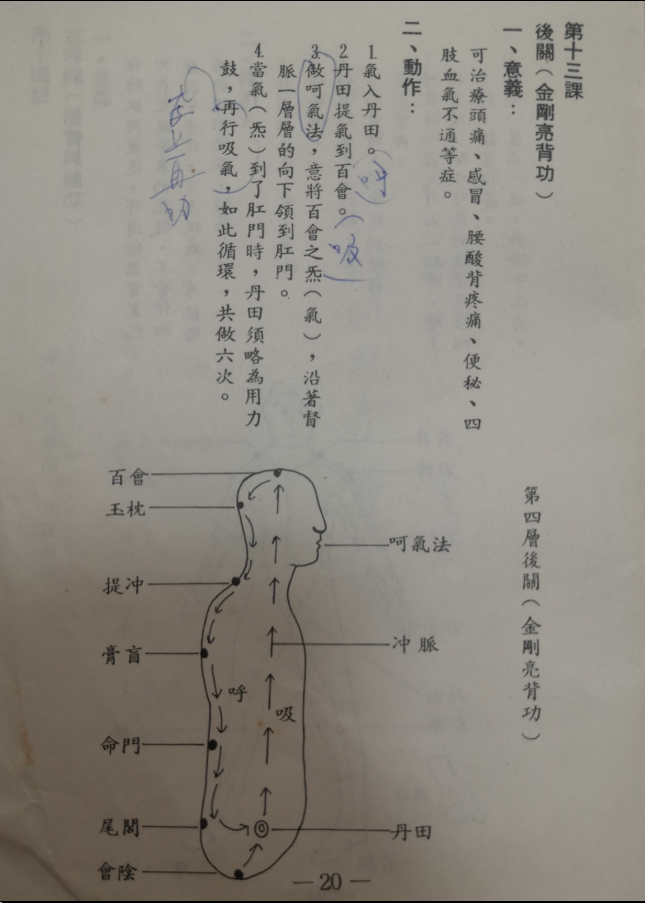 第十三課
後關（金剛亮背功）
一、意義：
可治療頭痛、感冒、腰酸背疼痛、便秘、四
肢血氣不通等症。
二、動作：
1.氣入丹田。（呼）
2.丹田提氣到百會。（吸）
3.做呵氣法，意將百會之炁（氣），沿著督
脈一層層的向下領到肛門。
4.當氣（炁）到了肛門時，丹田須略為用力
鼓，再行吸氣，如此循環，共做六次。
上再功
第四層後關（金剛亮背功）
百會
玉枕
呵氣法
提冲
膏盲
冲脈
呼
吸
命門
尾閭
丹田
會陰
— 20 —